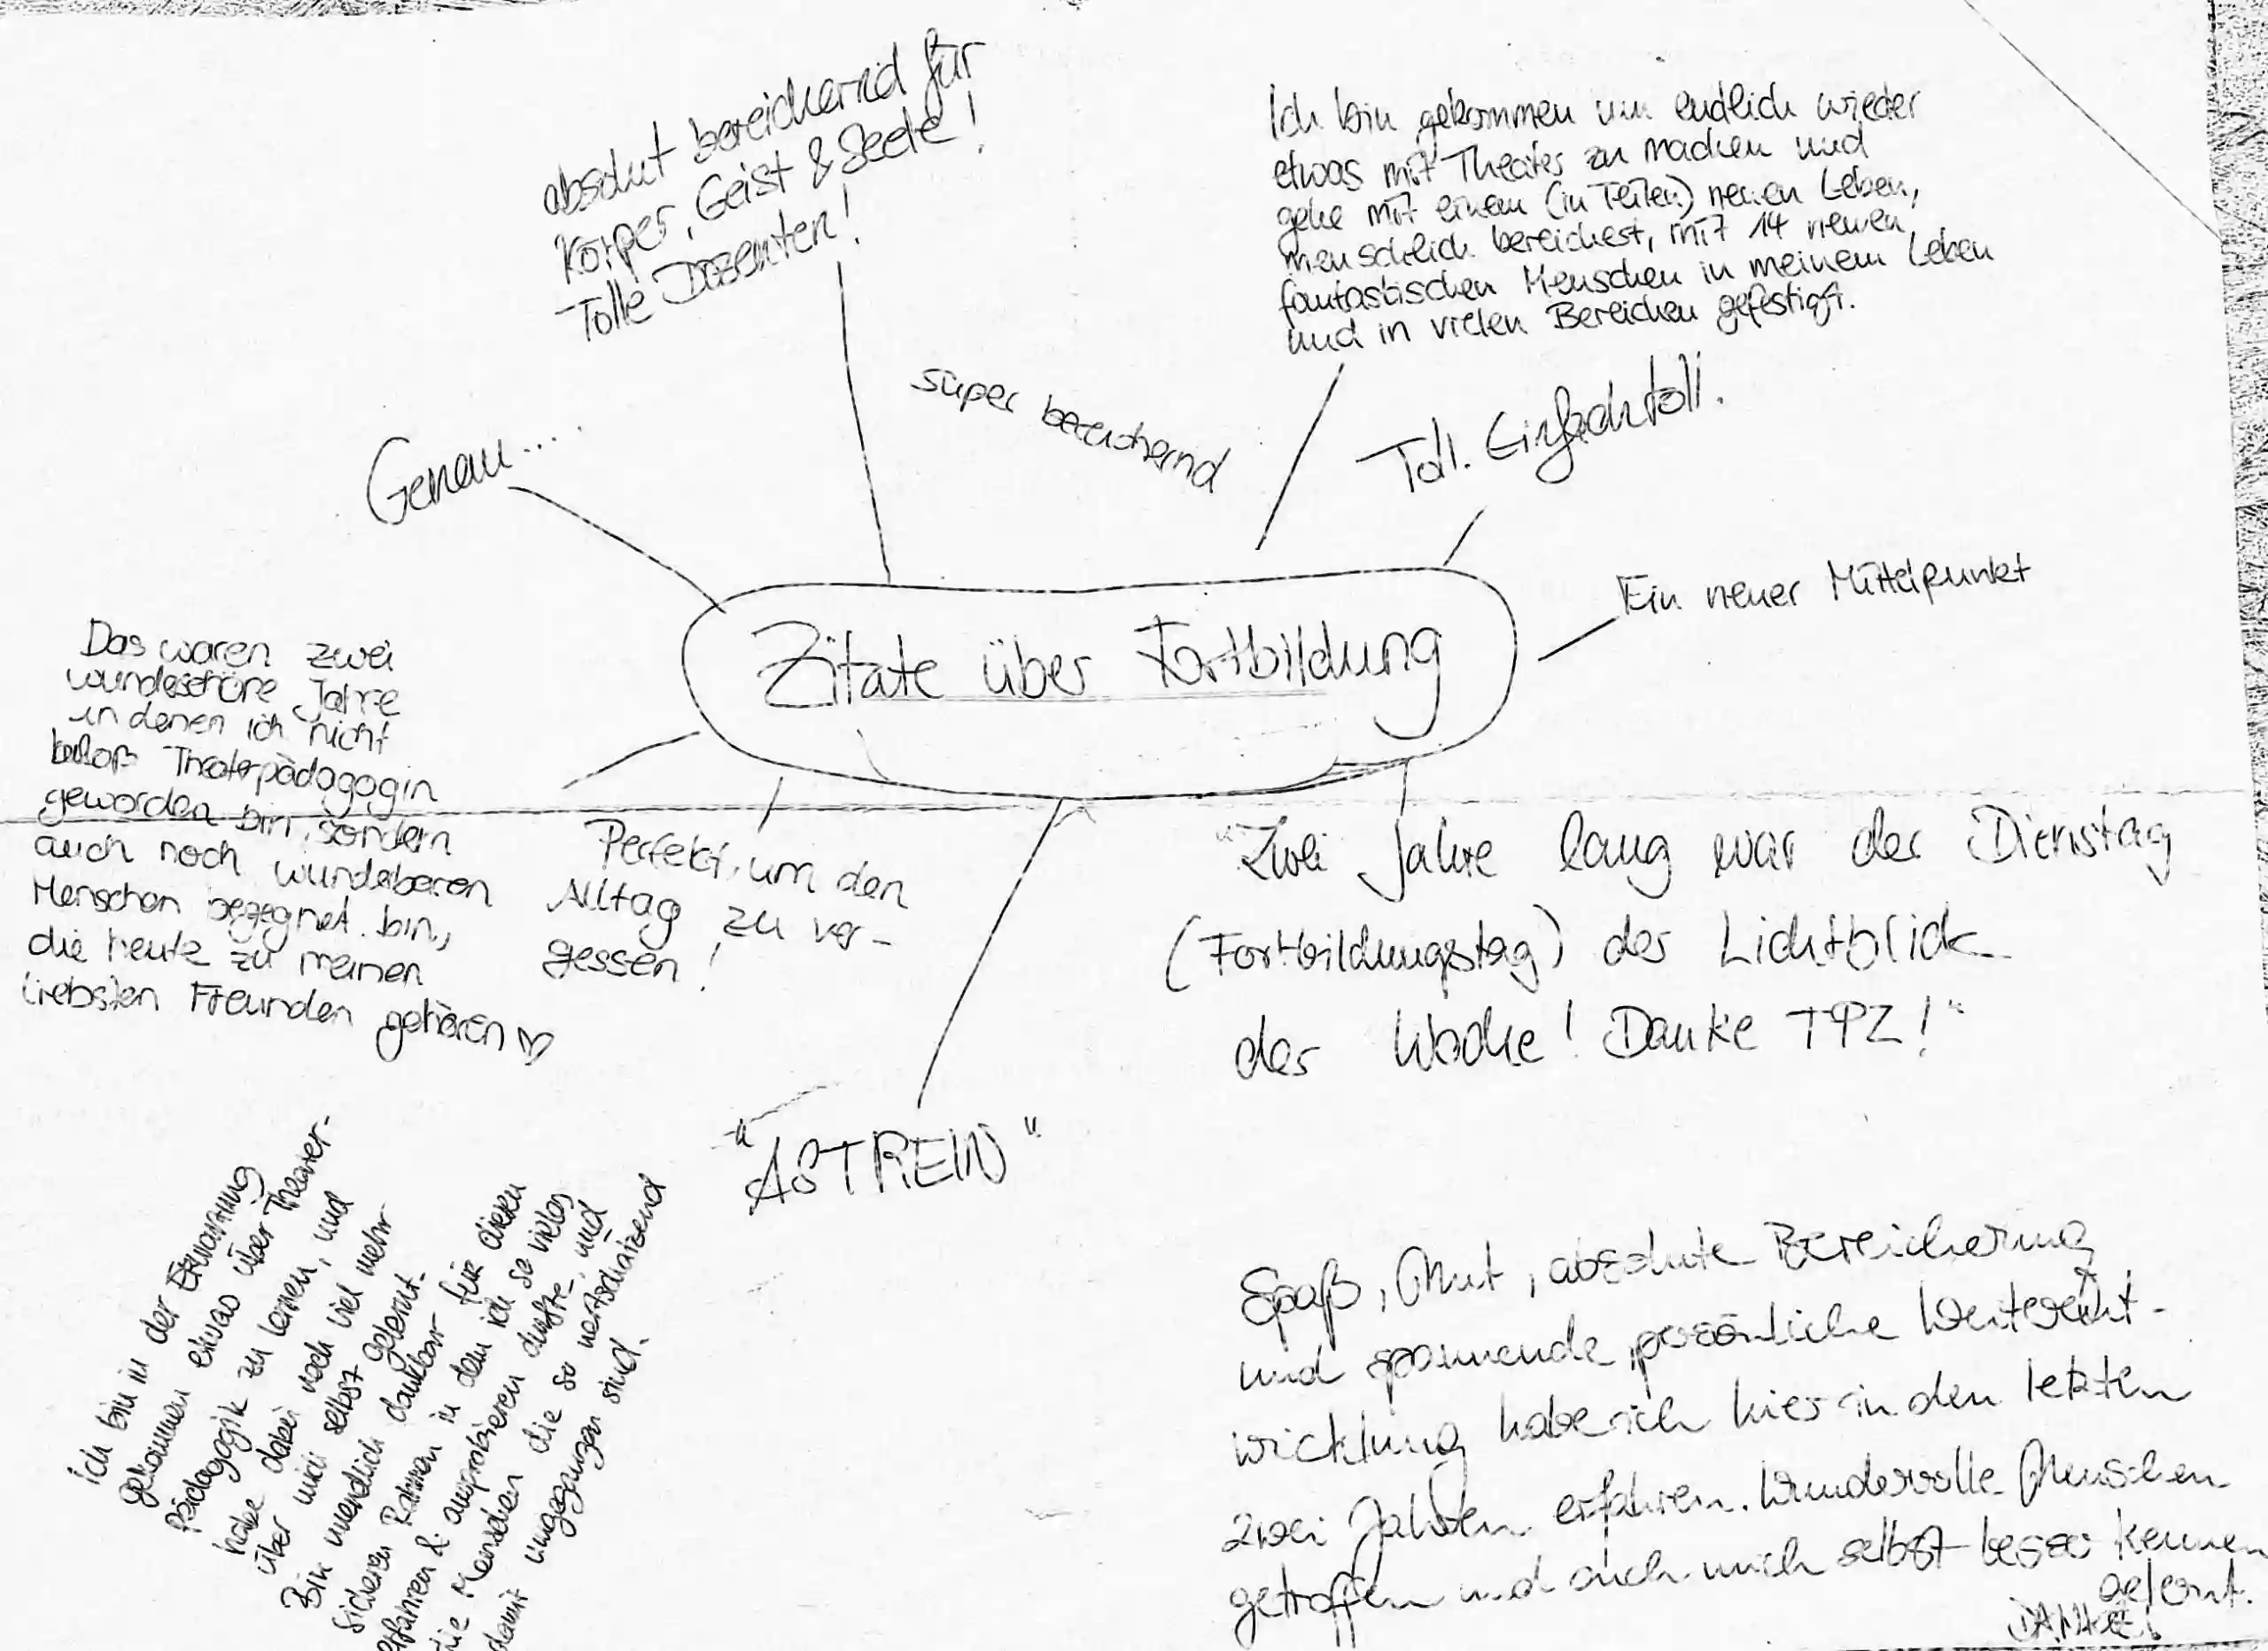 absolut bereichernd für
Körper, Geist & Seele!
Tolle Dozenten!
Ich bin gekommen um endlich wieder
etwas mit Theater zu machen und
gehe mit einem (in Teilen) neuen Leben,
menschlich bereichert, mit 14 neuen
fantastischen Menschen in meinem Leben
und in vielen Bereichen gefestigt.
super bereichernd
Toll. Einfach toll.
Genau....
Ein neuer Mittelpunkt
Zitate über Fortbildung
Das waren zwei
wundeschöne Jahre
in denen ich nicht
bloß Theaterpädagogin
geworden bin, sondern
auch noch wunderbaren
Menschen begegnet bin,
die heute zu meinen
liebsten Freunden gehören ♡
Perfekt, um den
Alltag zu ver-
gessen!
"Zwei Jahre lang war der Dienstag
(Fortbildungstag) der Lichtblick
der Woche! Danke TPZ!"
"ASTREIN"
Ich bin in der Erwartung
gekommen etwas über Theater-
Pädagogik zu lernen, und
habe dabei noch viel mehr
über mich selbst gelernt.
Bin unendlich dankbar für diesen
sicheren Rahmen in dem ich so vieles
erfahren & ausprobieren durfte, und
die Menschen die so wertschätzend
damit umgegangen sind.
Spaß, Mut, absolute Bereicherung
und spannende persönliche Weiterent-
wicklung habe ich hier in den letzten
zwei Jahren erfahren. Wundervolle Menschen
getroffen und auch mich selbst besser kennen
gelernt.
DANKE!